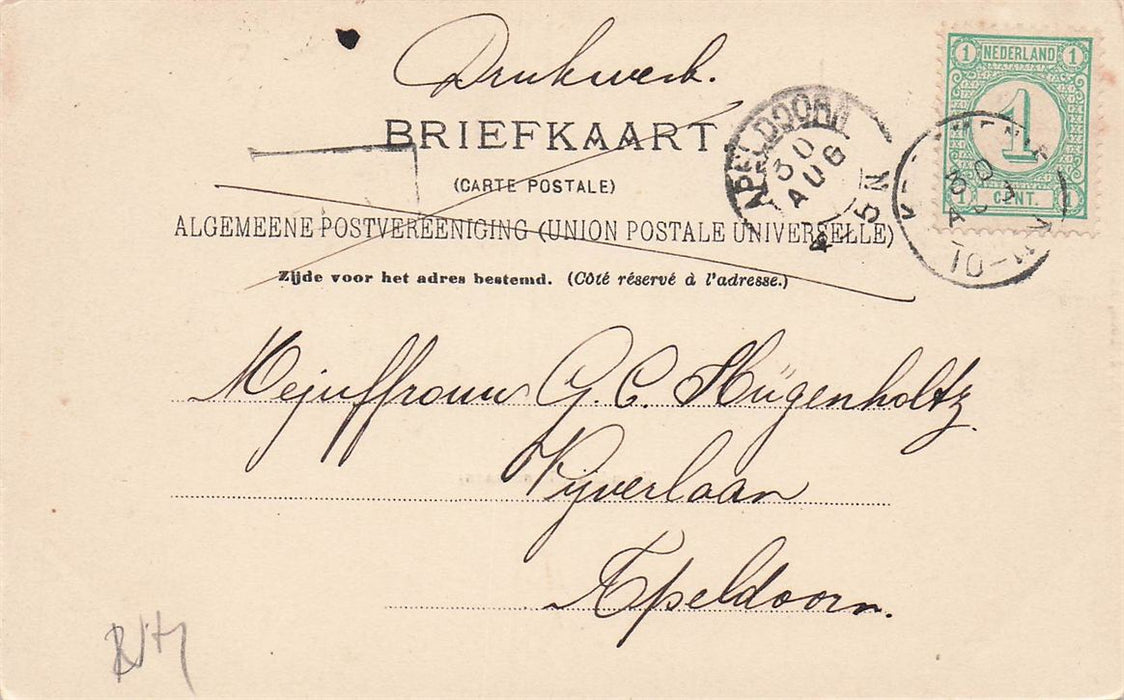 Drukwerk.
BRIEFKAART
(CARTE POSTALE)
ALGEMEENE POSTVEREENIGING (UNION POSTALE UNIVERSELLE)
Zijde voor het adres bestemd. (Côté réservé à l'adresse.)
1 NEDERLAND 1
1
1 CENT. 1
APELDOORN
30
AUG
4-5N
30
10-11V
Mejuffrouw G. C. Hügenholtz
Vijverlaan
Apeldoorn.